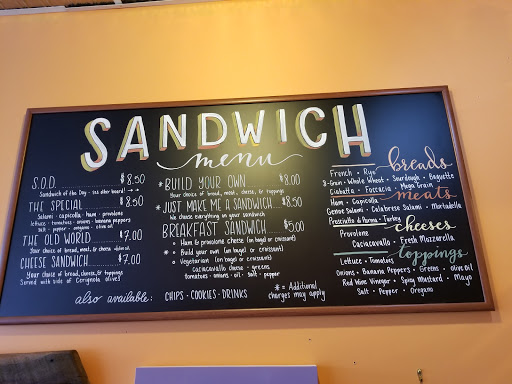 SANDWICH
menu
S.O.D. $8.50
Sandwich of the Day - see other board!
THE SPECIAL $8.50
Salami · capicolla · ham · provolone
lettuce · tomatoes · onions · banana peppers
salt · pepper · oregano · olive oil
THE OLD WORLD $7.00
Your choice of bread, meat, & cheese +olive oil
CHEESE SANDWICH $7.00
Your choice of bread, cheese, & toppings
Served with side of Cerignola olives!
also available: CHIPS · COOKIES · DRINKS
* BUILD YOUR OWN $8.00
Your choice of bread, meat, cheese, & toppings
* JUST MAKE ME A SANDWICH $8.50
We choose everything on your sandwich
BREAKFAST SANDWICH $5.00
Ham & provolone cheese (on bagel or croissant)
* Build your own (on bagel or croissant)
Vegetarian (on bagel or croissant)
caciacavallo cheese · greens
tomatoes · onions · oil · salt · pepper
* = Additional
charges may apply
breads
French · Rye
9-Grain · Whole Wheat · Sourdough · Baguette
Ciabatta · Foccacia · Mega Grain
meats
Ham · Capicolla
Genoa Salami · Calabrese Salami · Mortadella
Prosciutto di Parma · Turkey
cheeses
Provolone
Caciacavallo · Fresh Mozzarella
toppings
Lettuce · Tomatoes
Onions · Banana Peppers · Greens · olive oil
Red Wine Vinegar · Spicy Mustard · Mayo
Salt · Pepper · Oregano